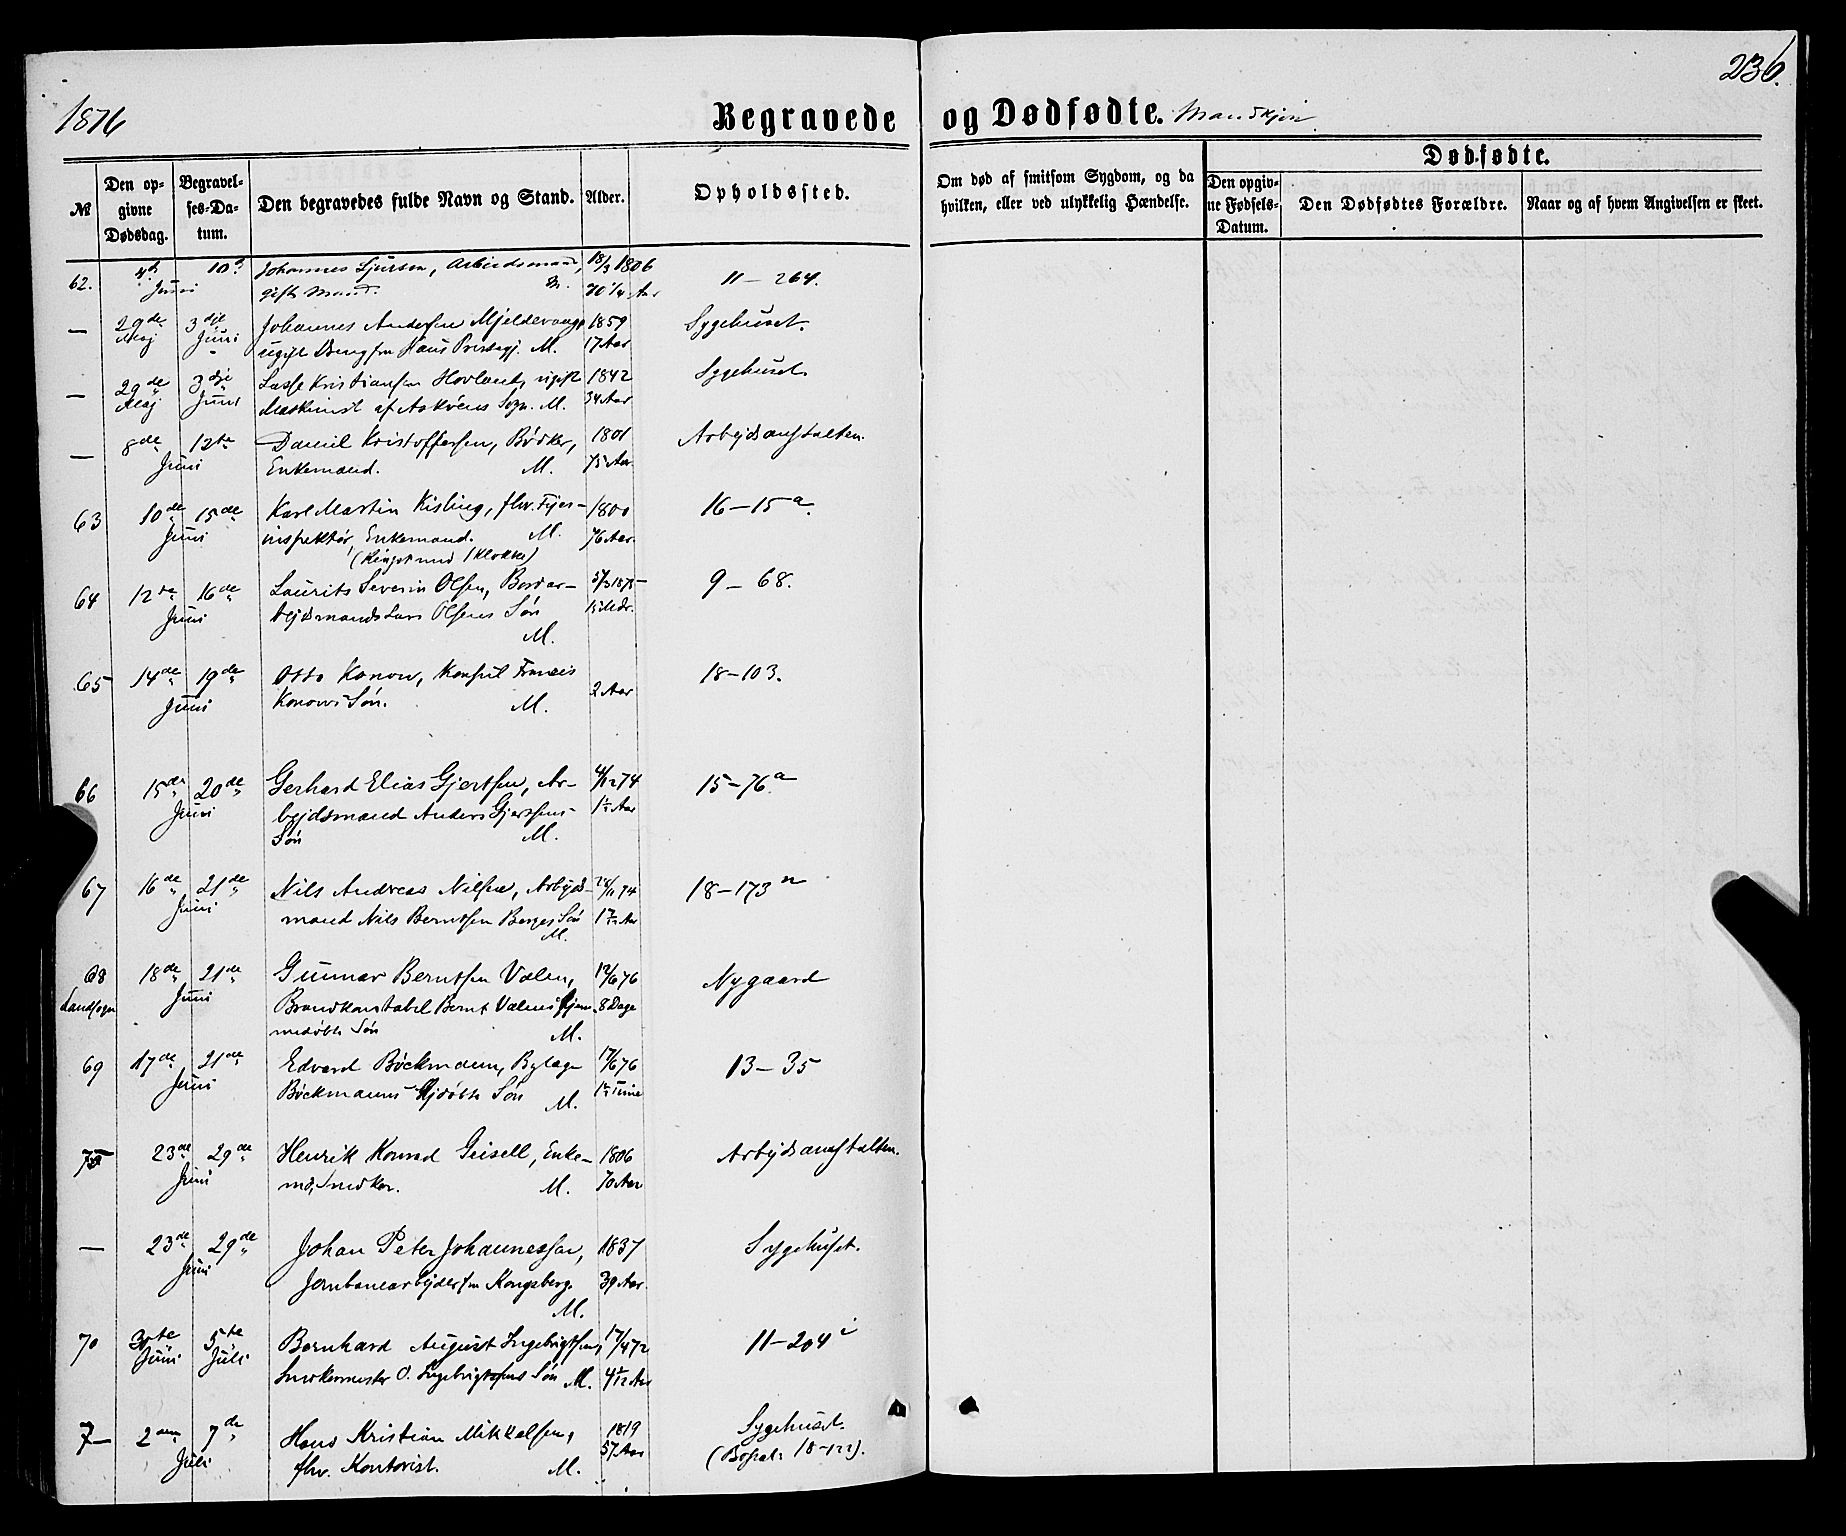 1876
236.
Begravede og Dødfødte. Mandkjøn
№
Den opgivne Dødsdag.
Begravelses-Datum.
Den begravedes fulde Navn og Stand.
Alder.
Opholdssted.
Om død af smitsom Sygdom, og da hvilken, eller ved ulykkelig Hændelse.
Dødfødte.
Den opgivne Fødsels-Datum.
Den Dødfødtes Forældre.
Naar og af hvem Angivelsen er skeet.
62. 4de 10de Johannes Sjursen, Arbeidsmand, 18/3 1806 11-264.
Juni gift Mand. M. 70 1/4 Aar
— 29de 3die Johannes Andersen Mjeldevang 1859 Sygehuset.
Maj Juni ugift Dreng fra Haus Præstegj. M. 17 Aar
— 29de 3die Lasse Kristiansen Hovland, ugift 1842 Sygehuset.
Maj Juni Maskinist af Askøens Sogn. M. 34 Aar
— 8de 12te Daniel Kristoffersen, Bødker, 1801 Arbejdsanstalten.
Juni Enkemand. M. 75 Aar
63 10de 15de Karl Martin Kisling, fhv. Tjær- 1800 16-15a
Juni inspektør, Enkemand. M. 76 Aar
(Ringet med 1 Klokke)
64 12te 16de Laurits Severin Olsen, Bordar- 5/3 1875 9-68.
Juni bejdsmand Lars Olsens Søn 15 Mdr.
M.
65 14de 19de Otto Konow, Konsul Francis 18-103.
Juni Konows Søn. M. 2 Aar
66 15de 20de Gerhard Elias Gjertsen, Ar- 4/12 74 15-76a
Juni bejdsmand Anders Gjertsens 1½ Aar
Søn M.
67 16de 21de Nils Andreas Nilsen, Arbejds- 18-173
Juni mand Nils Berntsen Berges Søn
M.
68 18de 21de Gunnar Berntsen Valen, 12/6 76 Nygaard
Landsogn Juni Brandkonstabel Bernt Valens Hjem- 8 Dage
medøbte Søn M.
69 17de 21de Edvard Böckmann, Bylæge 17/6 76 13-35
Juni Böckmanns Hjdøbte Søn M. ½ Time
23de 29de Henrik Konrad Geisell, Enke- 1806 Arbejdsanstalten.
Juni md, Snedker. M. 70 Aar
— 23de 29de Johan Peter Johannessen, 1837 Sygehuset.
Juni Jernbanearbejder fra Kongsberg. 39 Aar
M.
70 30te 5te Bernhard August Ingebrigtsen, 17/4 72 11-204i
Juni Juli Snedkermester O. Ingebrigtsens Søn M. 4 2/12 Aar
7— 2den 7de Hans Kristian Mikkelsen, 1819 Sygehuset.
Juli fhv. Kontorist. M. 57 Aar (Bopæl: 18-122).